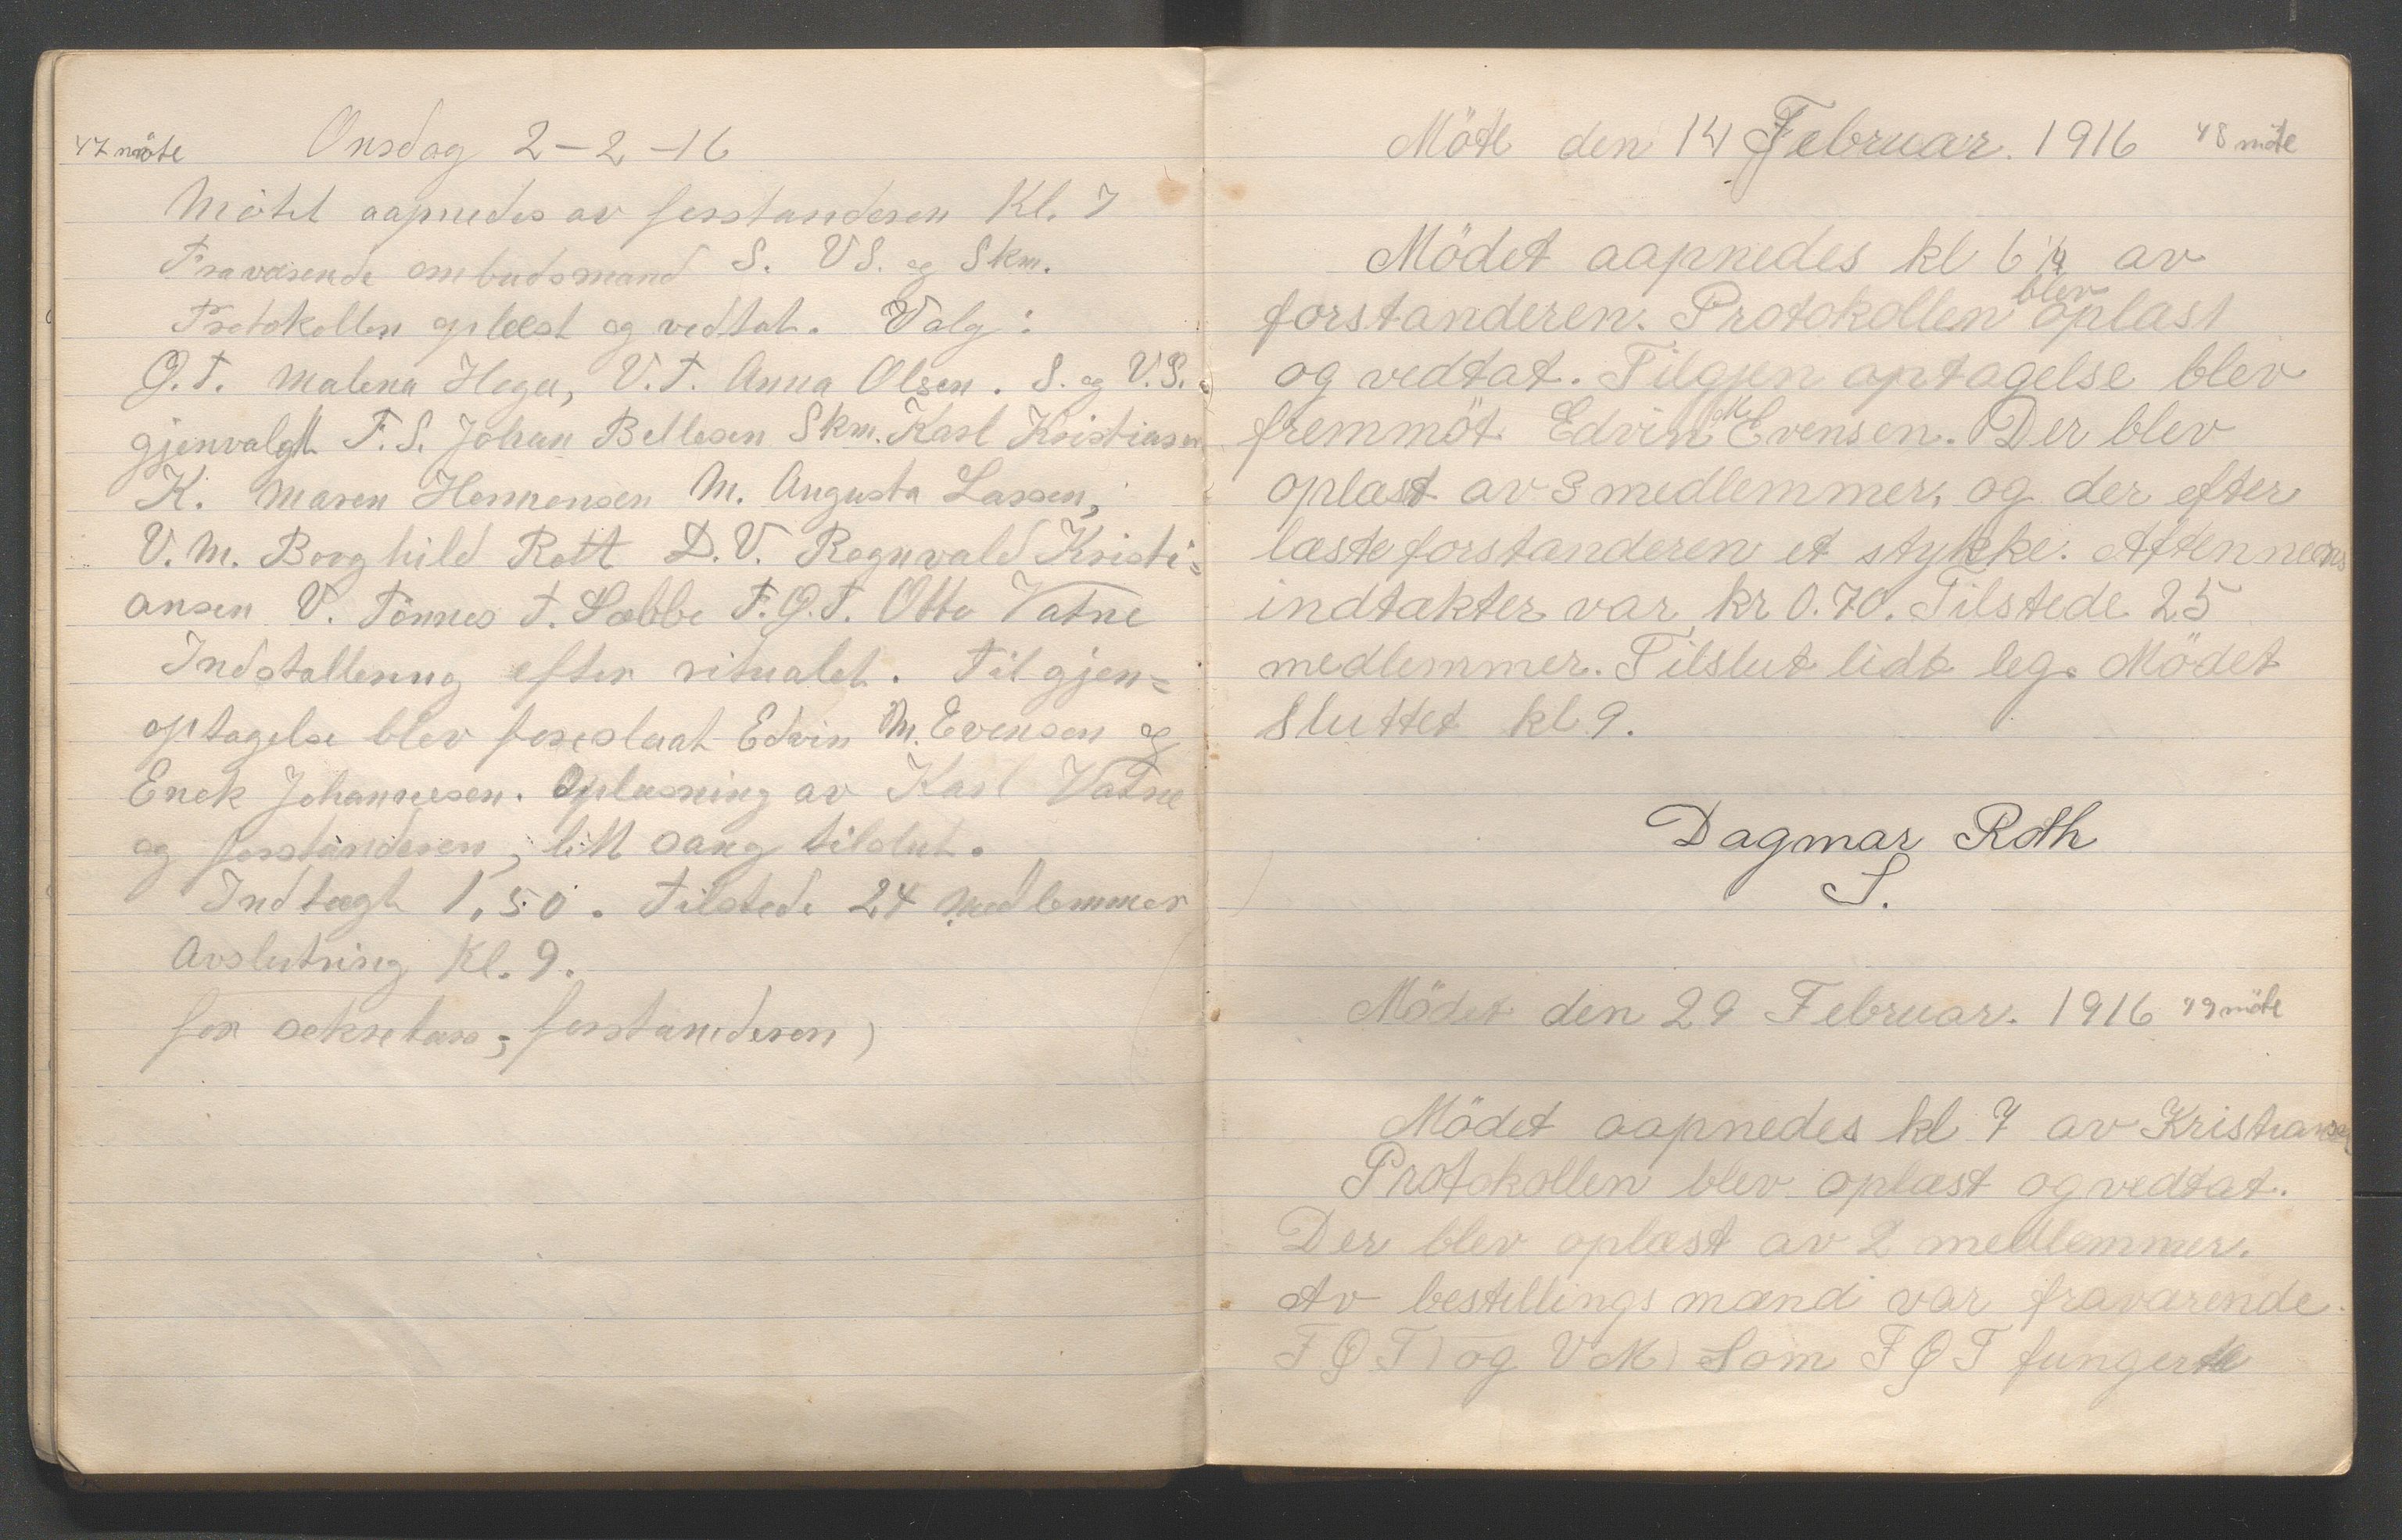 47 möte Onsdag 2-2-16
Mötet aapnedes av forstanderen Kl. 7
Fraværende ombudsmænd S. VS. og Skm.
Protokollen oplæst og vedtat. Valg:
Ø.T. Malena Hega, V.T. Anna Olsen. S. og V.S.
gjenvalgt F.S. Johan Bellesen Skm. Karl Kristiasen
K. Maren Henrensen M. Augusta Lassen,
V.M. Borghild Rott D.V. Ragnvald Kristi=
ansen V. Tönnes T. Sæbbe F.Ø.T. Otto Vatne
Indstallering efter ritualet. Til gjen=
optagelse blev foreslaat Edvin M. Evensen og
Enok Johannesen. Oplæsning av Karl Vatne
og forstanderen, litt sang tilslut.
Indtægt 1,50. Tilstede 24 medlemmer
Avslutning Kl. 9.
for sekretær; forstanderen)
Möte den 14 Februar. 1916 48 möte
Mödet aapnedes kl 6 1/4 av
forstanderen. Protokollen blev oplæst
og vedtat. Tilgjen optagelse blev
fremmöt Edvin M Evensen. Der blev
oplæst av 3 medlemmer, og der efter
læste forstanderen et stykke. Aftennens
indtækter var kr 0.70. Tilstede 25
medlemmer. Tilslut lidt leg. Mödet
sluttet kl 9.
Dagmar Roth
S.
Mödet den 29 Februar. 1916 49 möte
Mödet aapnedes kl 7 av Kristiansen
Protokollen blev oplæst og vedtat.
Der blev oplæst av 2 medlemmer.
Av bestillings mænd var fraværende.
F Ø T) og V M) Som F Ø T fungerte